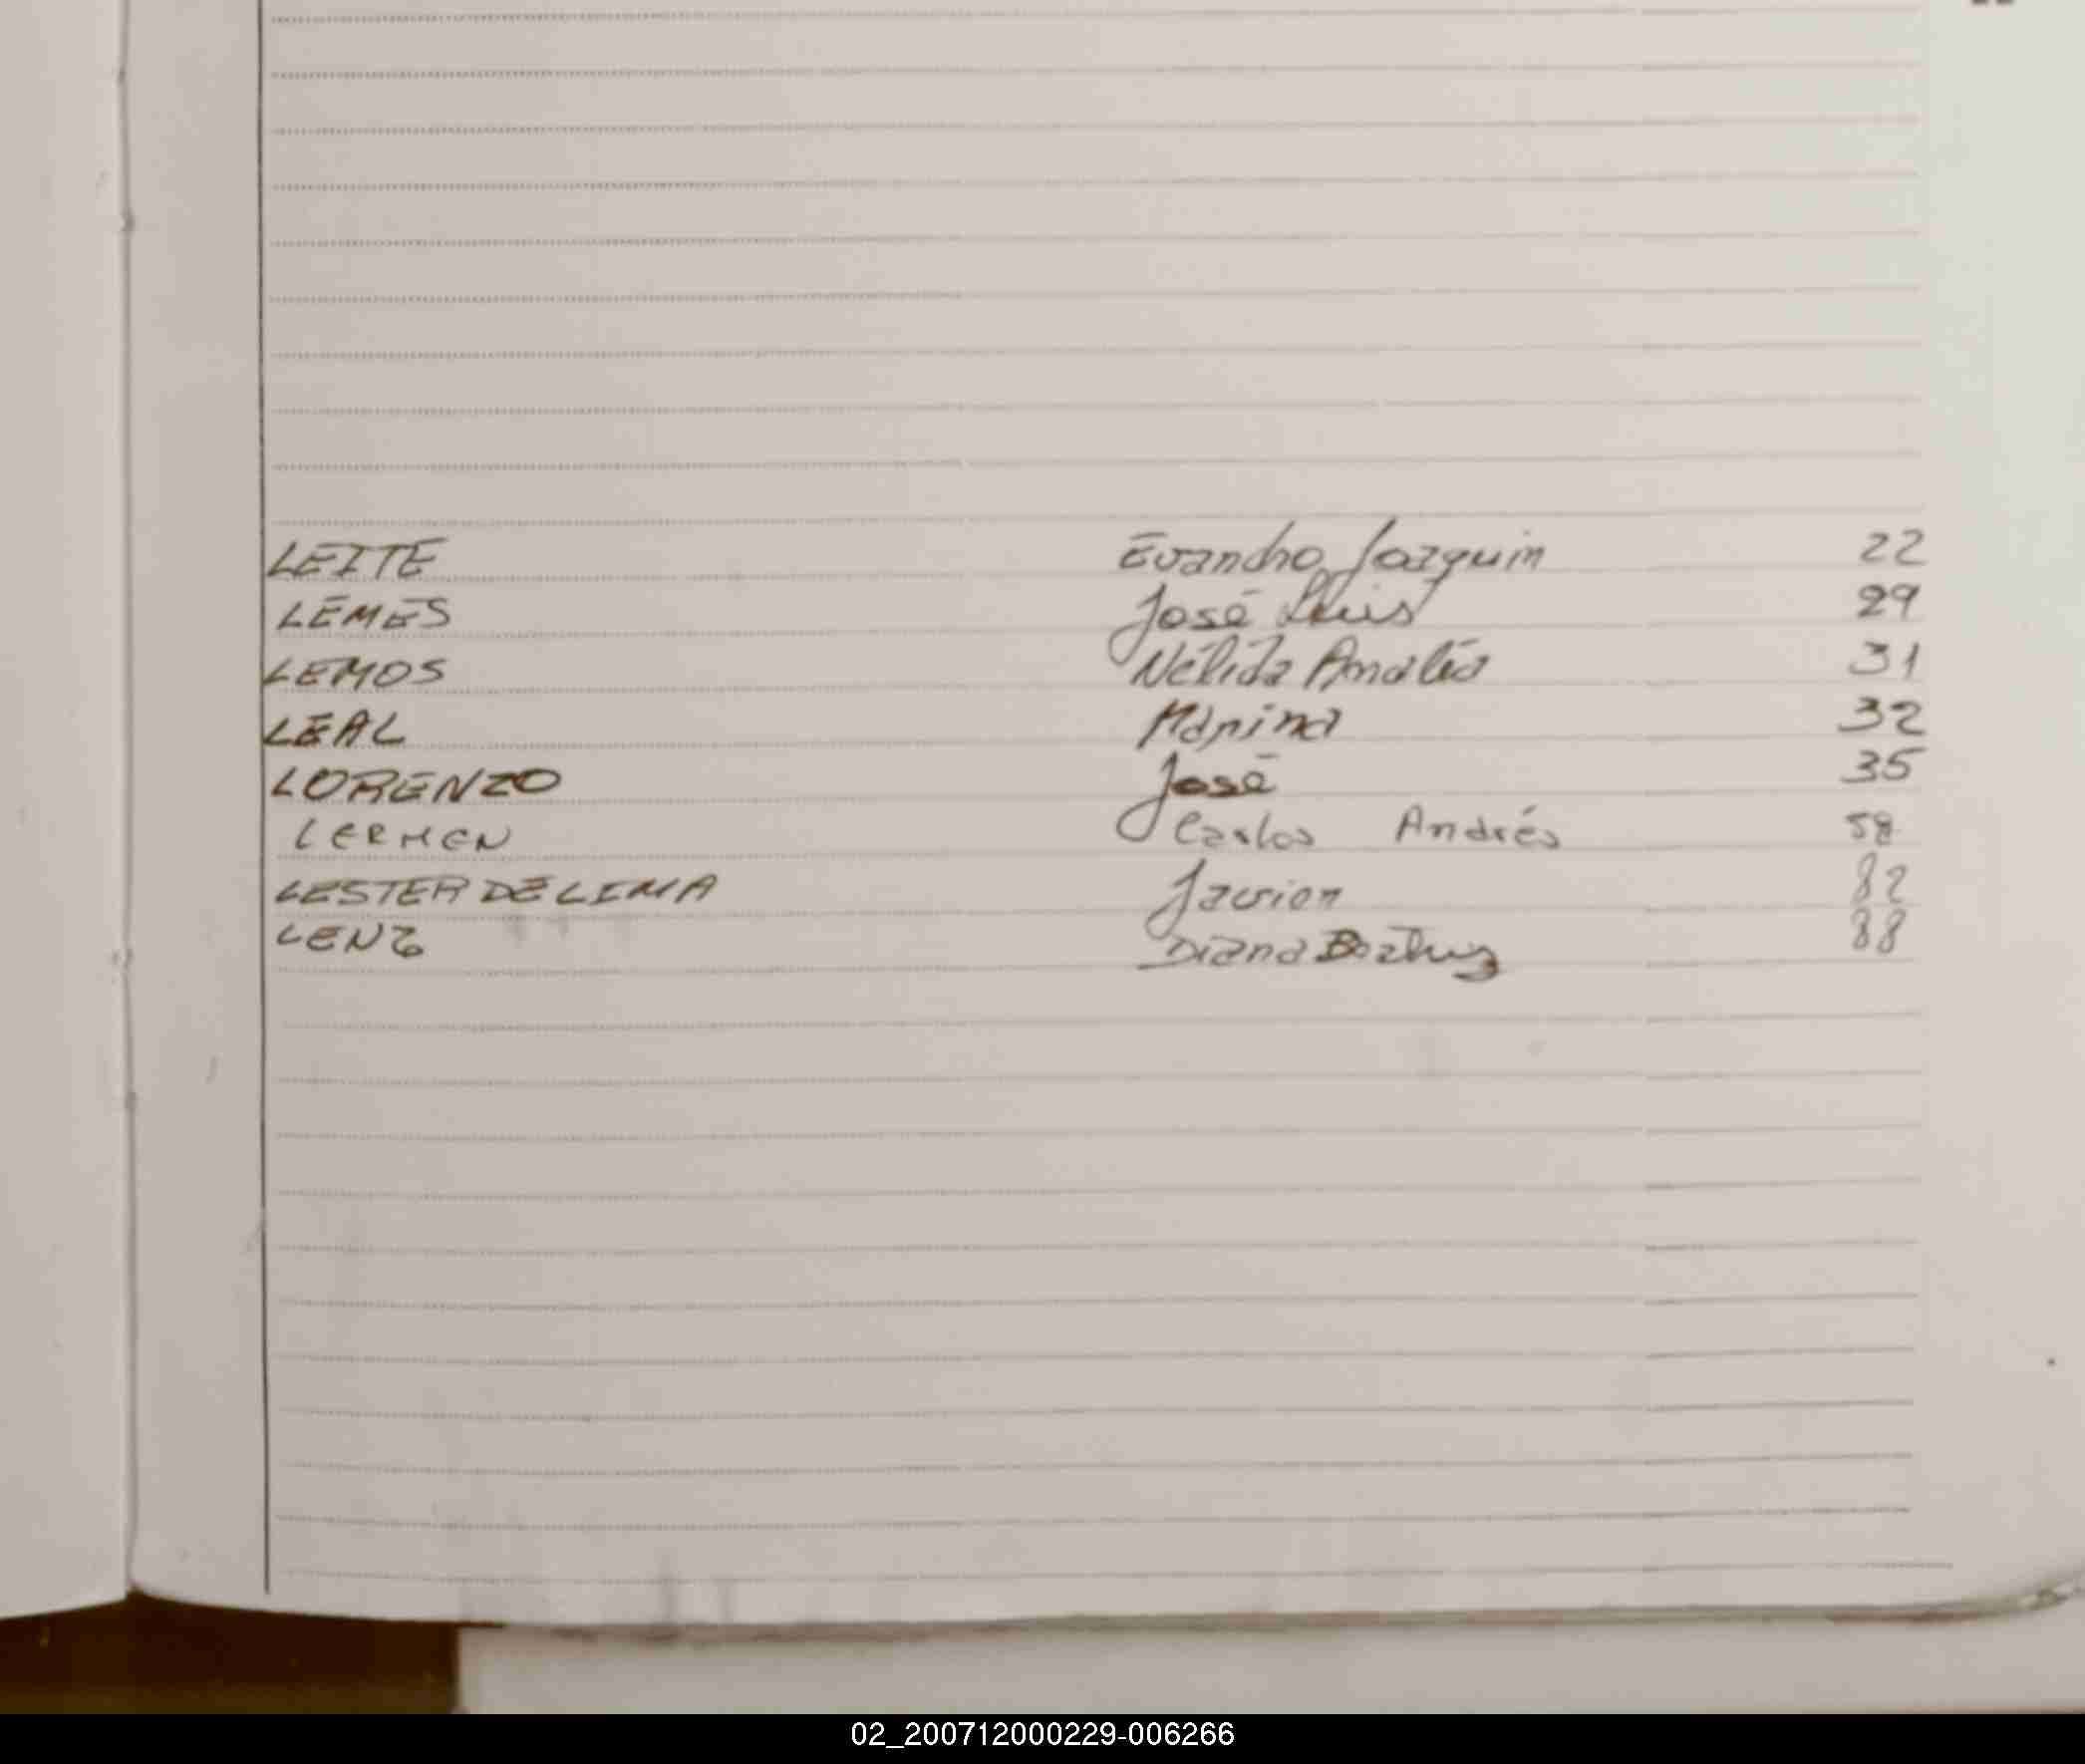 LEITE Evandro Joaquin 22
LEMES José Luis 29
LEMOS Nélida Amalia 31
LEAL Marina 32
LORENZO José 35
LERMEN Carlos Andrés 58
LESTER DE LIMA Javier 82
LENZ Diana Beatriz 88
02_200712000229-006266